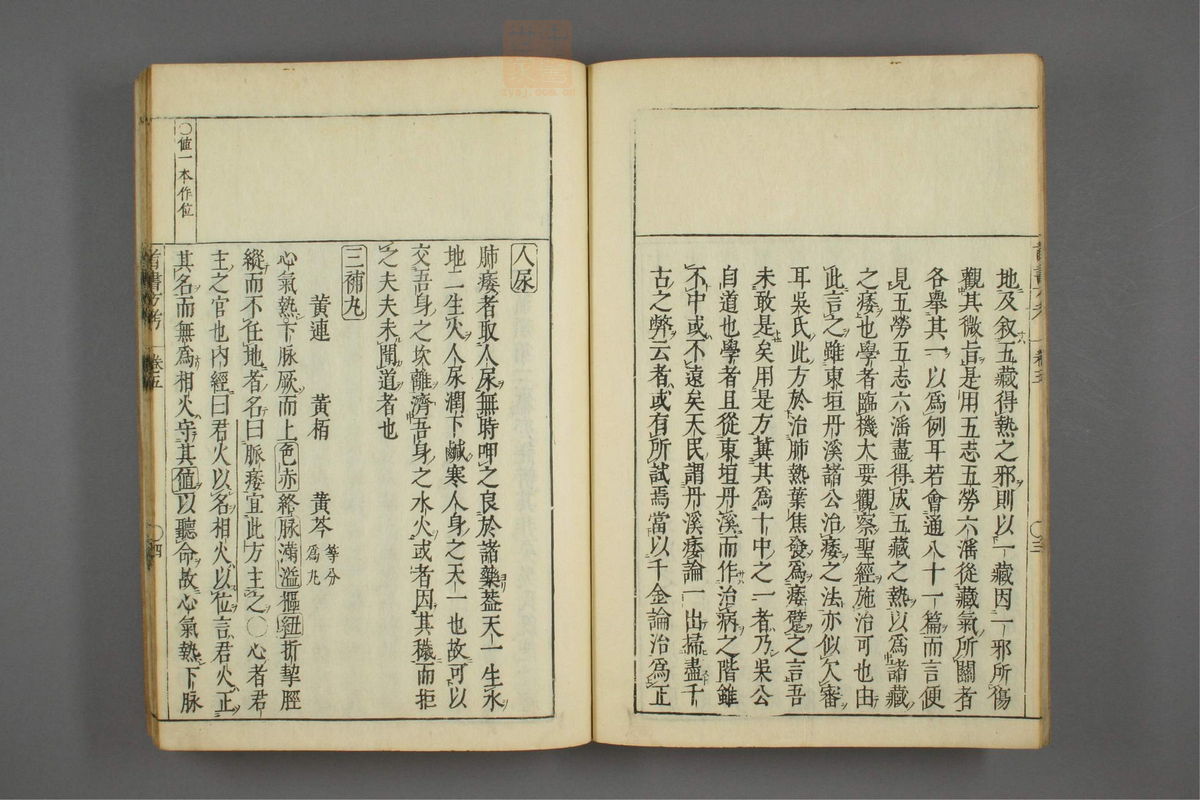 地及叙五藏得熱之邪則以一藏因一邪所傷
觀其微旨是用五志五勞六淫從藏氣所關者
各舉其一以爲例耳若會通八十一篇而言便
見五勞五志六淫盡得成五藏之熱以爲諸藏
之痿也學者臨機大要觀察聖經施治可也由
此言之雖東垣丹溪諸公治痿之法亦似欠審
耳吳氏此方於治肺熱葉焦發爲痿躄之言吾
未敢是矣用是方冀其爲十中之一者乃吳公
自道也學者且從東垣丹溪而作治病之階雖
不中或不遠矣天民謂丹溪痿論一出掃盡千
古之弊云者或有所試焉當以千金論治爲正
人尿
肺痿者取人尿無時呷之良於諸藥葢天一生水
地二生火人尿潤下鹹寒人身之天一也故可以
交吾身之坎離濟吾身之水火或者因其穢而拒
之夫夫未聞道者也
三補丸
黃連 黃栢 黃芩 等分爲丸
心氣熱下脉厥而上色赤絡脉滿溢樞紐折挈脛
縱而不任地者名曰脈痿宜此方主之○心者君
主之官也內經曰君火以名相火以位言君火正
其名而無爲相火守其値以聽命故心氣熱下脉
○値一本作位
卷五
○四
○三